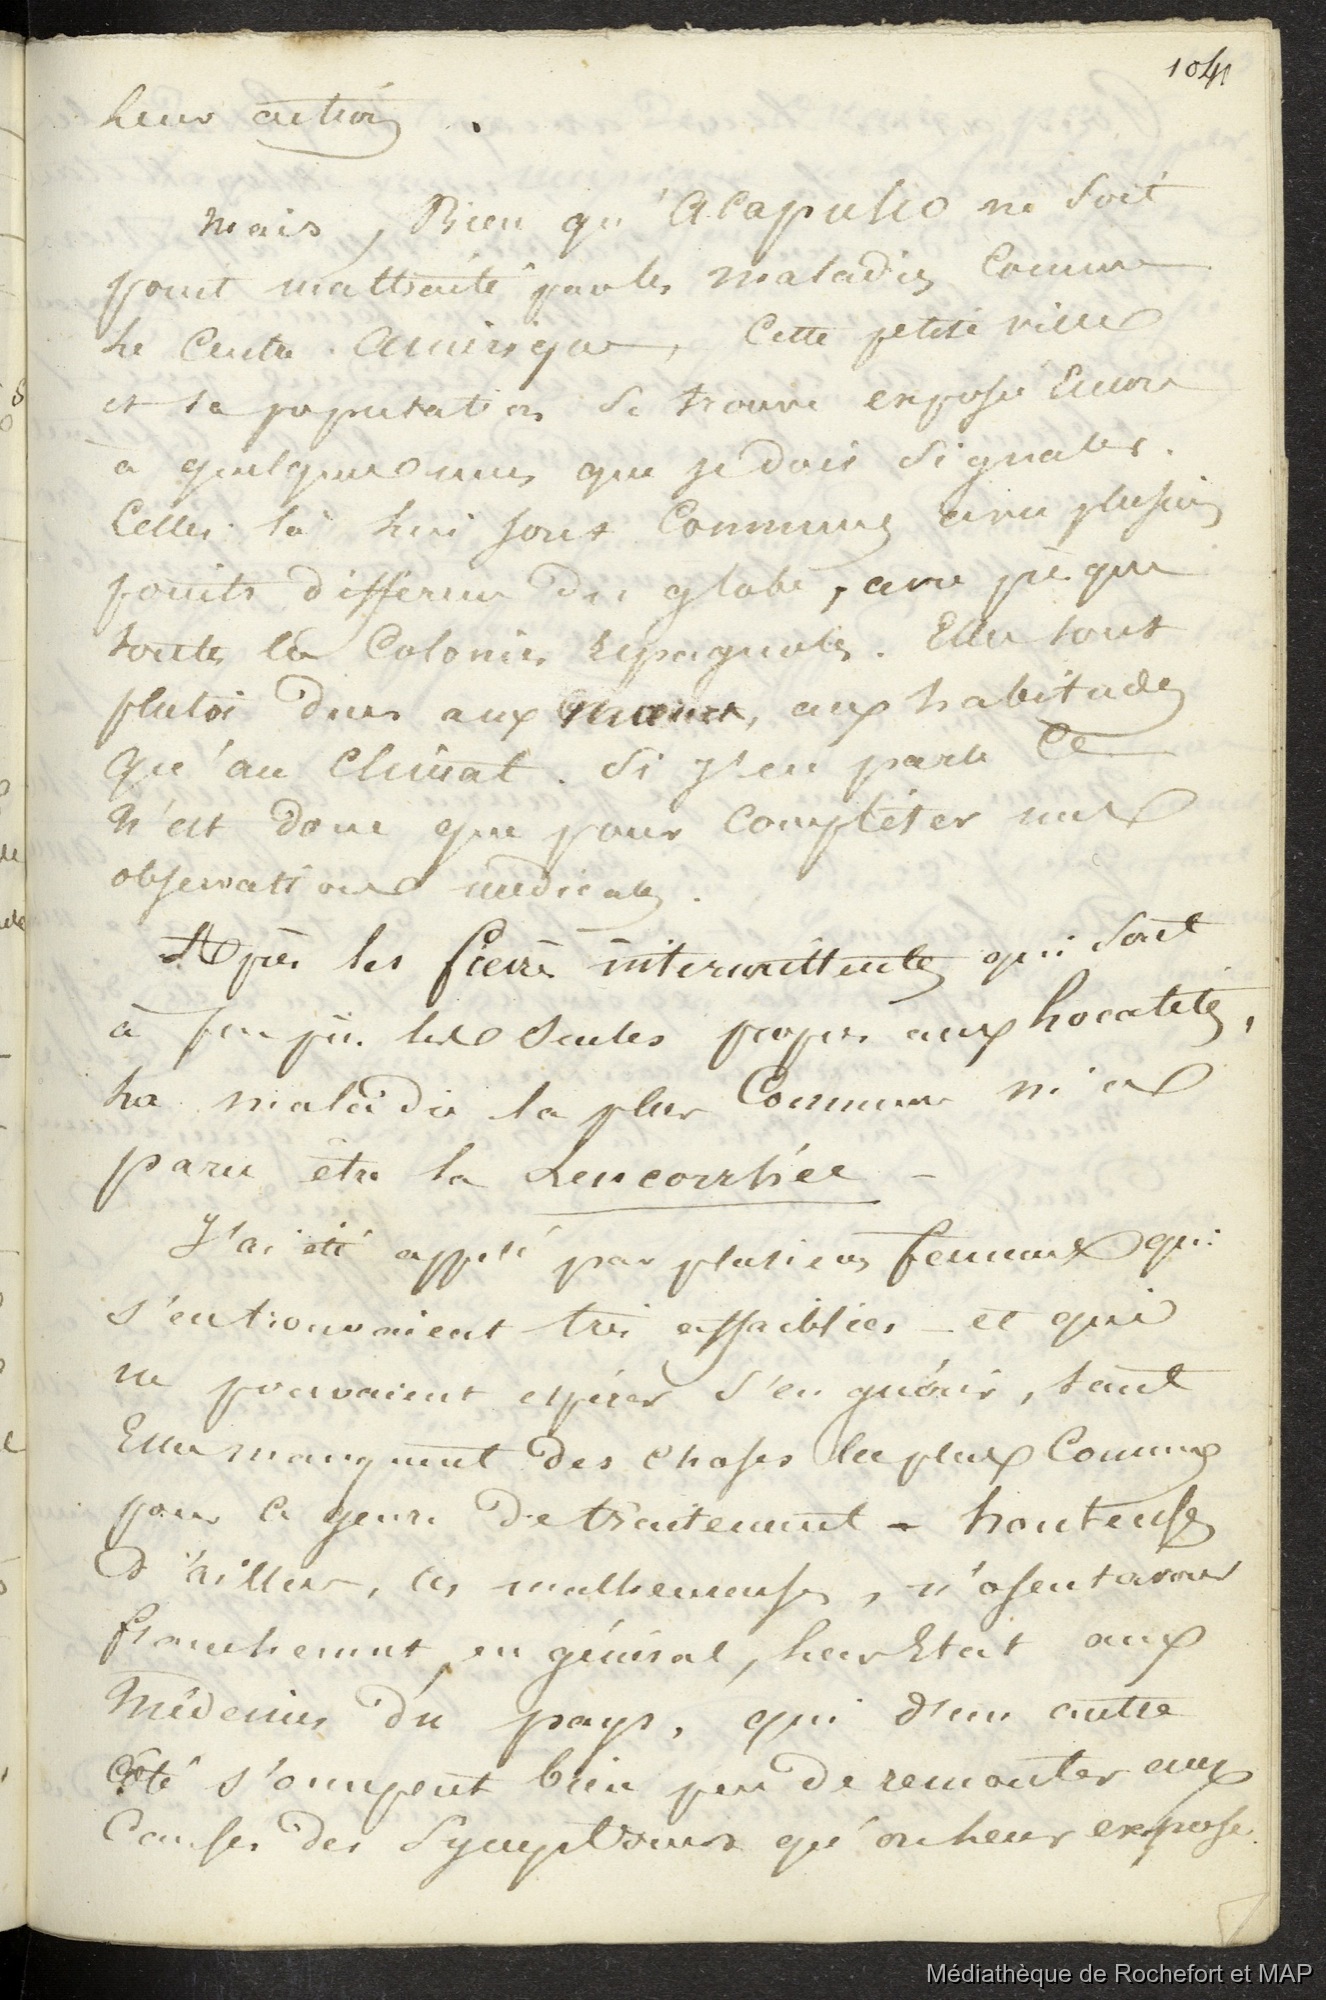 104
leur action.
Mais, Bien qu'Acapulco ne soit
point maltraité par les maladies Comme
le Centre Amérique, Cette petite ville
et sa population se trouve exposé Encore
à quelques unes que je dois signaler.
Celles là lui sont Communes avec plusieurs
points differens du globe, avec presque
toutes les Colonies Espagnoles. Elles sont
plutot dues aux mœurs, aux habitudes
qu'au Climat. Si J'en parle Ce
N'est donc que pour Compléter mes
observations médicales.
Après les fievres intermittentes qui sont
à peu près les seules propres aux Localités,
La maladie la plus Commune m'a
paru être la Leucorrhée -
J'ai été appelé par plusieurs femmes qui
s'en trouvaient très affaiblies - et qui
ne pouvaient espérer s'en guérir, tant
Elles manquent des choses les plus Communes
pour Ce genre De traitement - honteuses
D'ailleurs, Ces malheureuses, n'osent avouer
franchement, en général, leur Etat aux
Médecins du pays, qui d'un autre
côté s'occupent bien peu De remonter aux
Causes des Symptomes qu'on leur expose.
Médiathèque de Rochefort et MAP